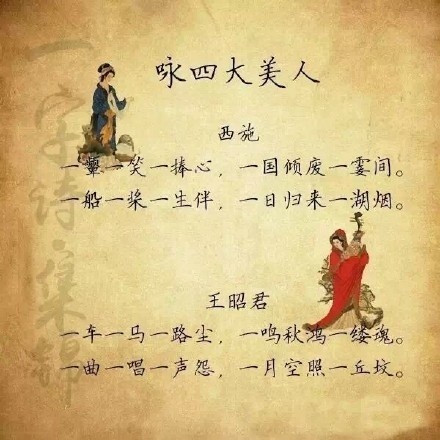 咏四大美人
西施
一颦一笑一捧心，一国倾废一霎间。
一船一桨一生伴，一日归来一湖烟。
王昭君
一车一马一路尘，一鸣秋鸿一缕魂。
一曲一唱一声怨，一月空照一丘坟。
一字诗·集锦